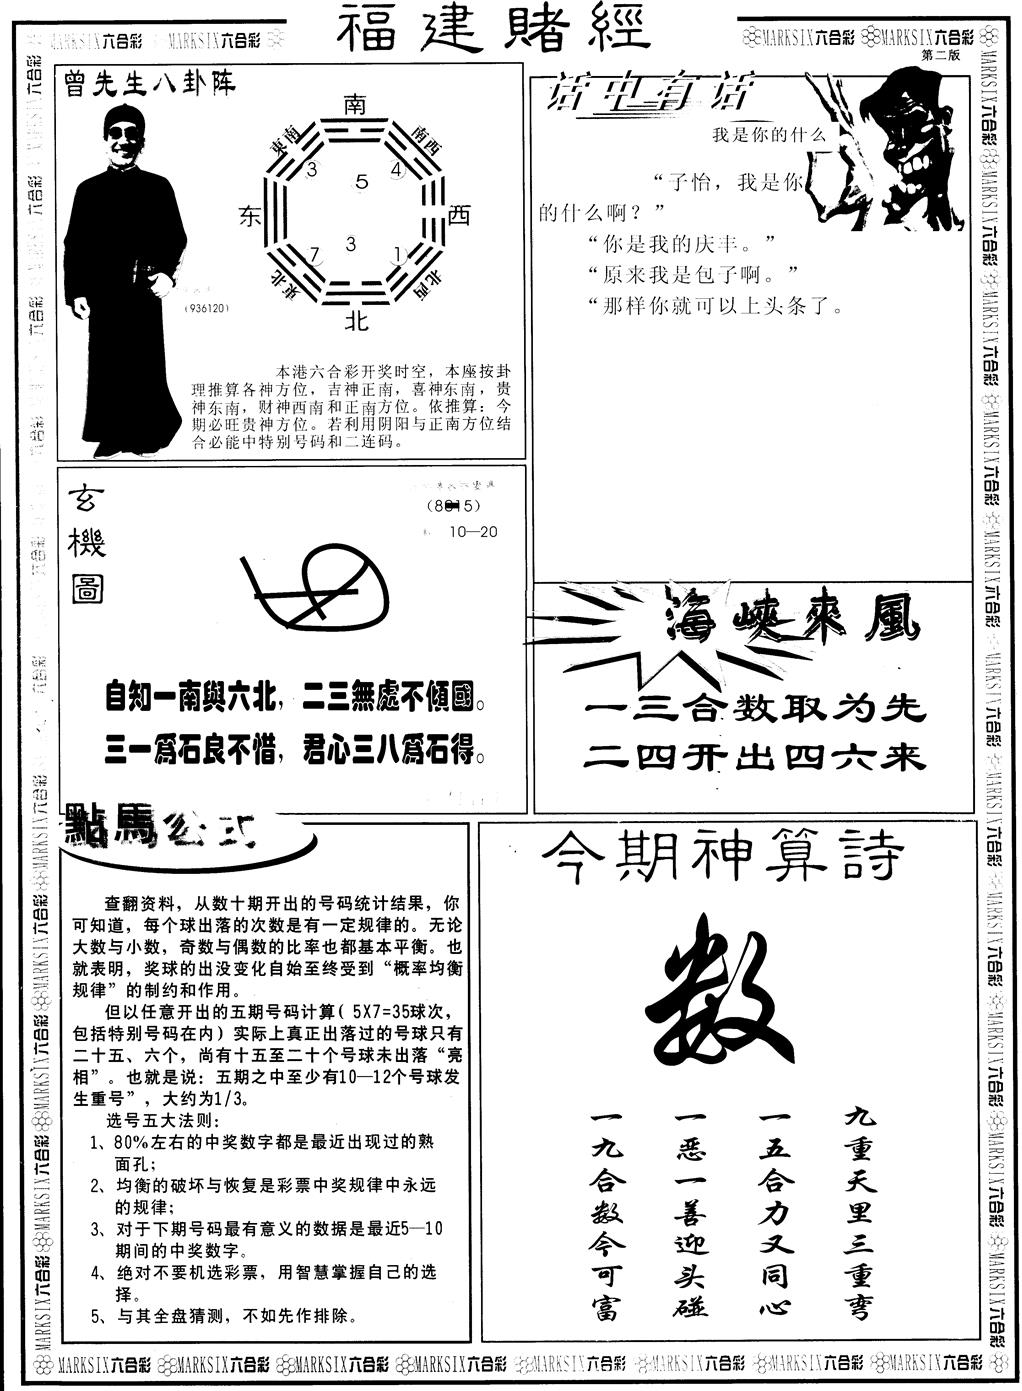 福建賭經
MARKSIX六合彩 MARKSIX六合彩
MARKSIX六合彩 MARKSIX六合彩
第二版
曾先生八卦阵
南
東南
南西
3
4
5
东
西
7
3
1
東北
北西
北
(936120)
本港六合彩开奖时空，本座按卦
理推算各神方位，吉神正南，喜神东南，贵
神东南，财神西南和正南方位。依推算：今
期必旺贵神方位。若利用阴阳与正南方位结
合必能中特别号码和二连码。
话中有话
我是你的什么
“子怡，我是你
的什么啊？”
“你是我的庆丰。”
“原来我是包子啊。”
“那样你就可以上头条了。
玄機圖
10—20
自知一南與六北，二三無處不傾國。
三一爲石良不惜，君心三八爲石得。
海峽來風
一三合数取为先
二四开出四六来
點馬公式
查翻资料，从数十期开出的号码统计结果，你
可知道，每个球出落的次数是有一定规律的。无论
大数与小数，奇数与偶数的比率也都基本平衡。也
就表明，奖球的出没变化自始至终受到“概率均衡
规律”的制约和作用。
但以任意开出的五期号码计算( 5X7=35球次，
包括特别号码在内) 实际上真正出落过的号球只有
二十五、六个，尚有十五至二十个号球未出落“亮
相”。也就是说：五期之中至少有10—12个号球发
生重号”，大约为1/3。
选号五大法则：
1、80%左右的中奖数字都是最近出现过的熟
面孔；
2、均衡的破坏与恢复是彩票中奖规律中永远
的规律；
3、对于下期号码最有意义的数据是最近5—10
期间的中奖数字。
4、绝对不要机选彩票，用智慧掌握自己的选
择。
5、与其全盘猜测，不如先作排除。
今期神算詩
数
九重天里三重弯
一五合力又同心
一恶一善迎头碰
一九合数今可富
MARKSIX六合彩 MARKSIX六合彩 MARKSIX六合彩 MARKSIX六合彩 MARKSIX六合彩 MARKSIX六合彩 MARKSIX六合彩 MARKSIX六合彩